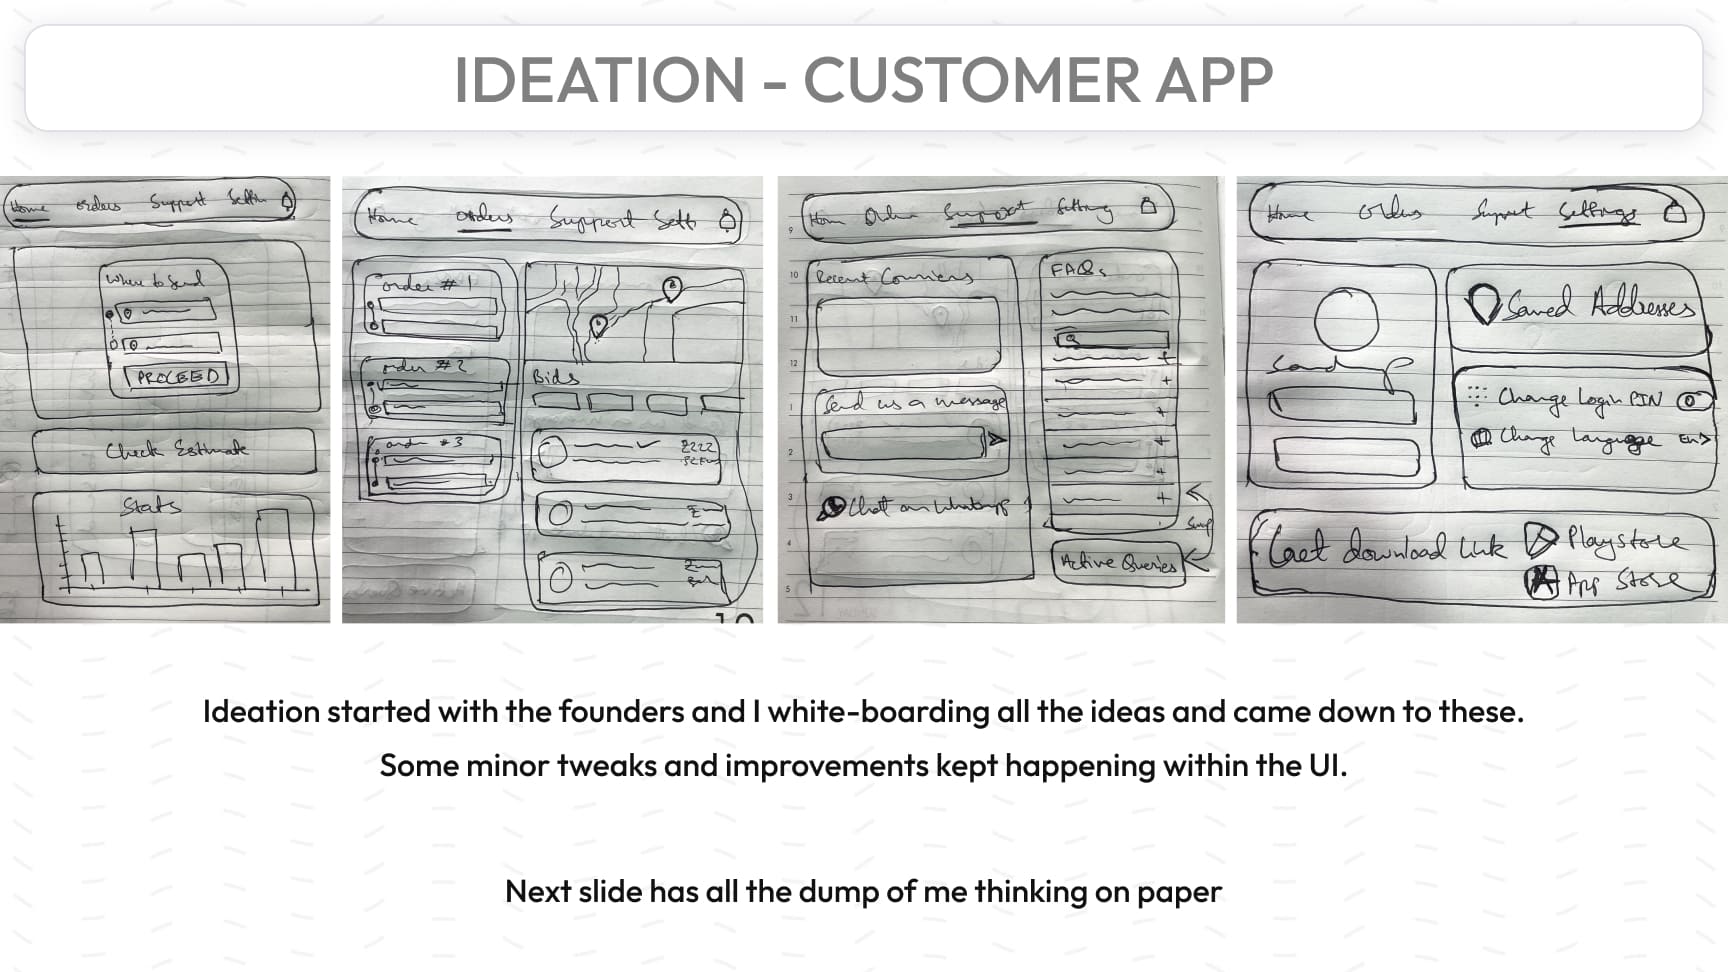 IDEATION - CUSTOMER APP
Home Orders Support Settin
Where to Send
PROCEED
Check Estimate
Stats
Home Orders Support Setti
order # 1
order # 2
order # 3
Bids
Home Orders Support Setting
9
10
11
12
1
2
3
4
5
Recent Couriers
Send us a message
Chat on Whatsapp
FAQs
Swap
Active Queries
Home Orders Support Settings
Saved Addresses
Change Login PIN
Change Language En >
Get download link
Playstore
App Store
Ideation started with the founders and I white-boarding all the ideas and came down to these.
Some minor tweaks and improvements kept happening within the UI.
Next slide has all the dump of me thinking on paper